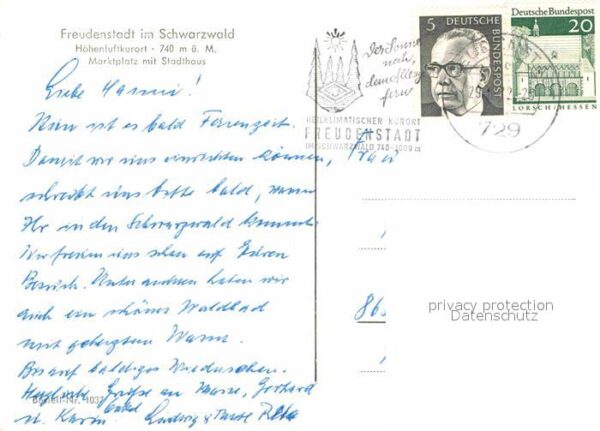 Freudenstadt im Schwarzwald
Höhenluftkurort - 740 m ü. M.
Marktplatz mit Stadthaus
Liebe Hanni!
Nun ist es bald Ferienzeit.
Damit wir uns einrichten können,
schreibt uns bitte bald, wann
Ihr in den Schwarzwald kommt.
Wir freuen uns schon auf Euren
Besuch. Unter anderem haben wir
auch ein schönes Waldbad
mit geheiztem Wasser.
Bis auf baldiges Wiedersehen.
Herzliche Grüße an Gerhard
u. Karin Ludwig & Tante
Bestell-Nr. 1037
Der Sonne
nah,
dem
fern
HEILKLIMATISCHER KURORT
FREUDENSTADT
IM SCHWARZWALD 740-1000 m
5
DEUTSCHE BUNDESPOST
Deutsche Bundespost
20
LORSCH/HESSEN
729
Frau
86
privacy protection
Datenschutz